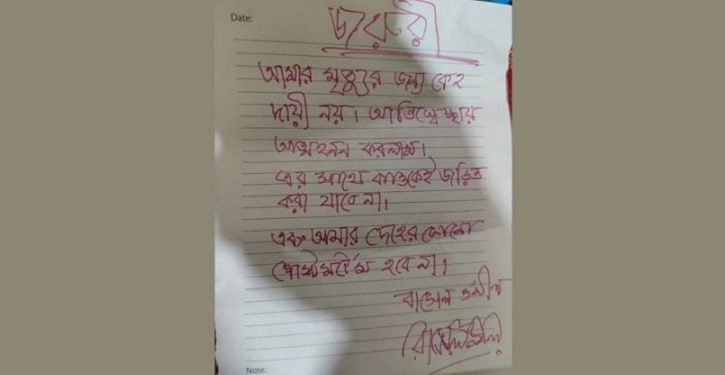 Date:
জরুরী
আমার মৃত্যুর জন্য কেহ
দায়ী নয়। আমি স্বেচ্ছায়
আত্মহনন করলাম।
এর সাথে কাওকেই জড়িত
করা যাবে না।
এবং আমার দেহের কোনো
পোস্টমর্টেম হবে না।
Note: